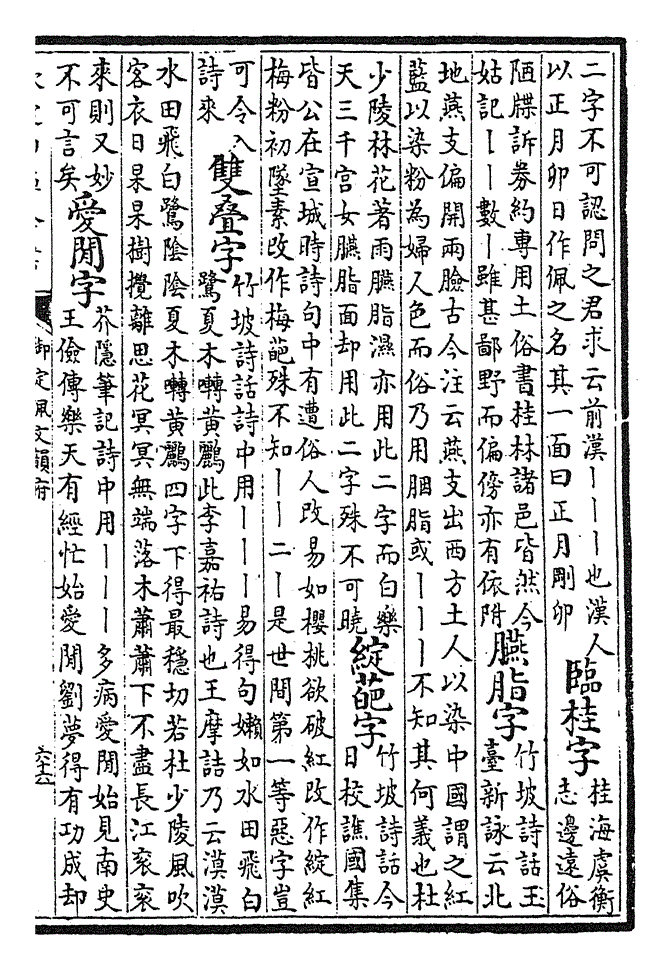 二字不可認問之君求云前漢丨丨丨也漢人
以正月卯日作佩之名其一面曰正月剛卯
臨桂字
桂海虞衡
志邊遠俗
陋牒訴劵約專用土俗書桂林諸邑皆然今
姑記丨丨數丨雖甚鄙野而偏傍亦有依附
臙脂字
竹坡詩話玉
臺新詠云北
地燕支偏開兩臉古今注云燕支出西方土人以染中國謂之紅
藍以染粉為婦人色而俗乃用胭脂或丨丨丨不知其何義也杜
少陵林花著雨臙脂濕亦用此二字而白樂
天三千宫女臙脂面却用此二字殊不可曉
綻葩字
竹坡詩話今
日校譙國集
皆公在宣城時詩句中有遭俗人改易如櫻桃欲破紅改作綻紅
梅粉初墜素改作梅葩殊不知丨丨二丨是世間第一等惡字豈
可令入
詩來
雙叠字
竹坡詩話詩中用丨丨丨易得句嬾如水田飛白
鷺夏木囀黄鸝此李嘉祐詩也王摩詰乃云漠漠
水田飛白鷺陰陰夏木囀黄鸝四字下得最穩切若杜少陵風吹
客衣日杲杲樹攪離思花冥冥無端落木蕭蕭下不盡長江衮衮
來則又妙
不可言矣
愛閒字
芥隱筆記詩中用丨丨丨多病愛閒始見南史
王儉傳樂天有經忙始愛閒劉夢得有功成却
御定佩文韻府
六十六